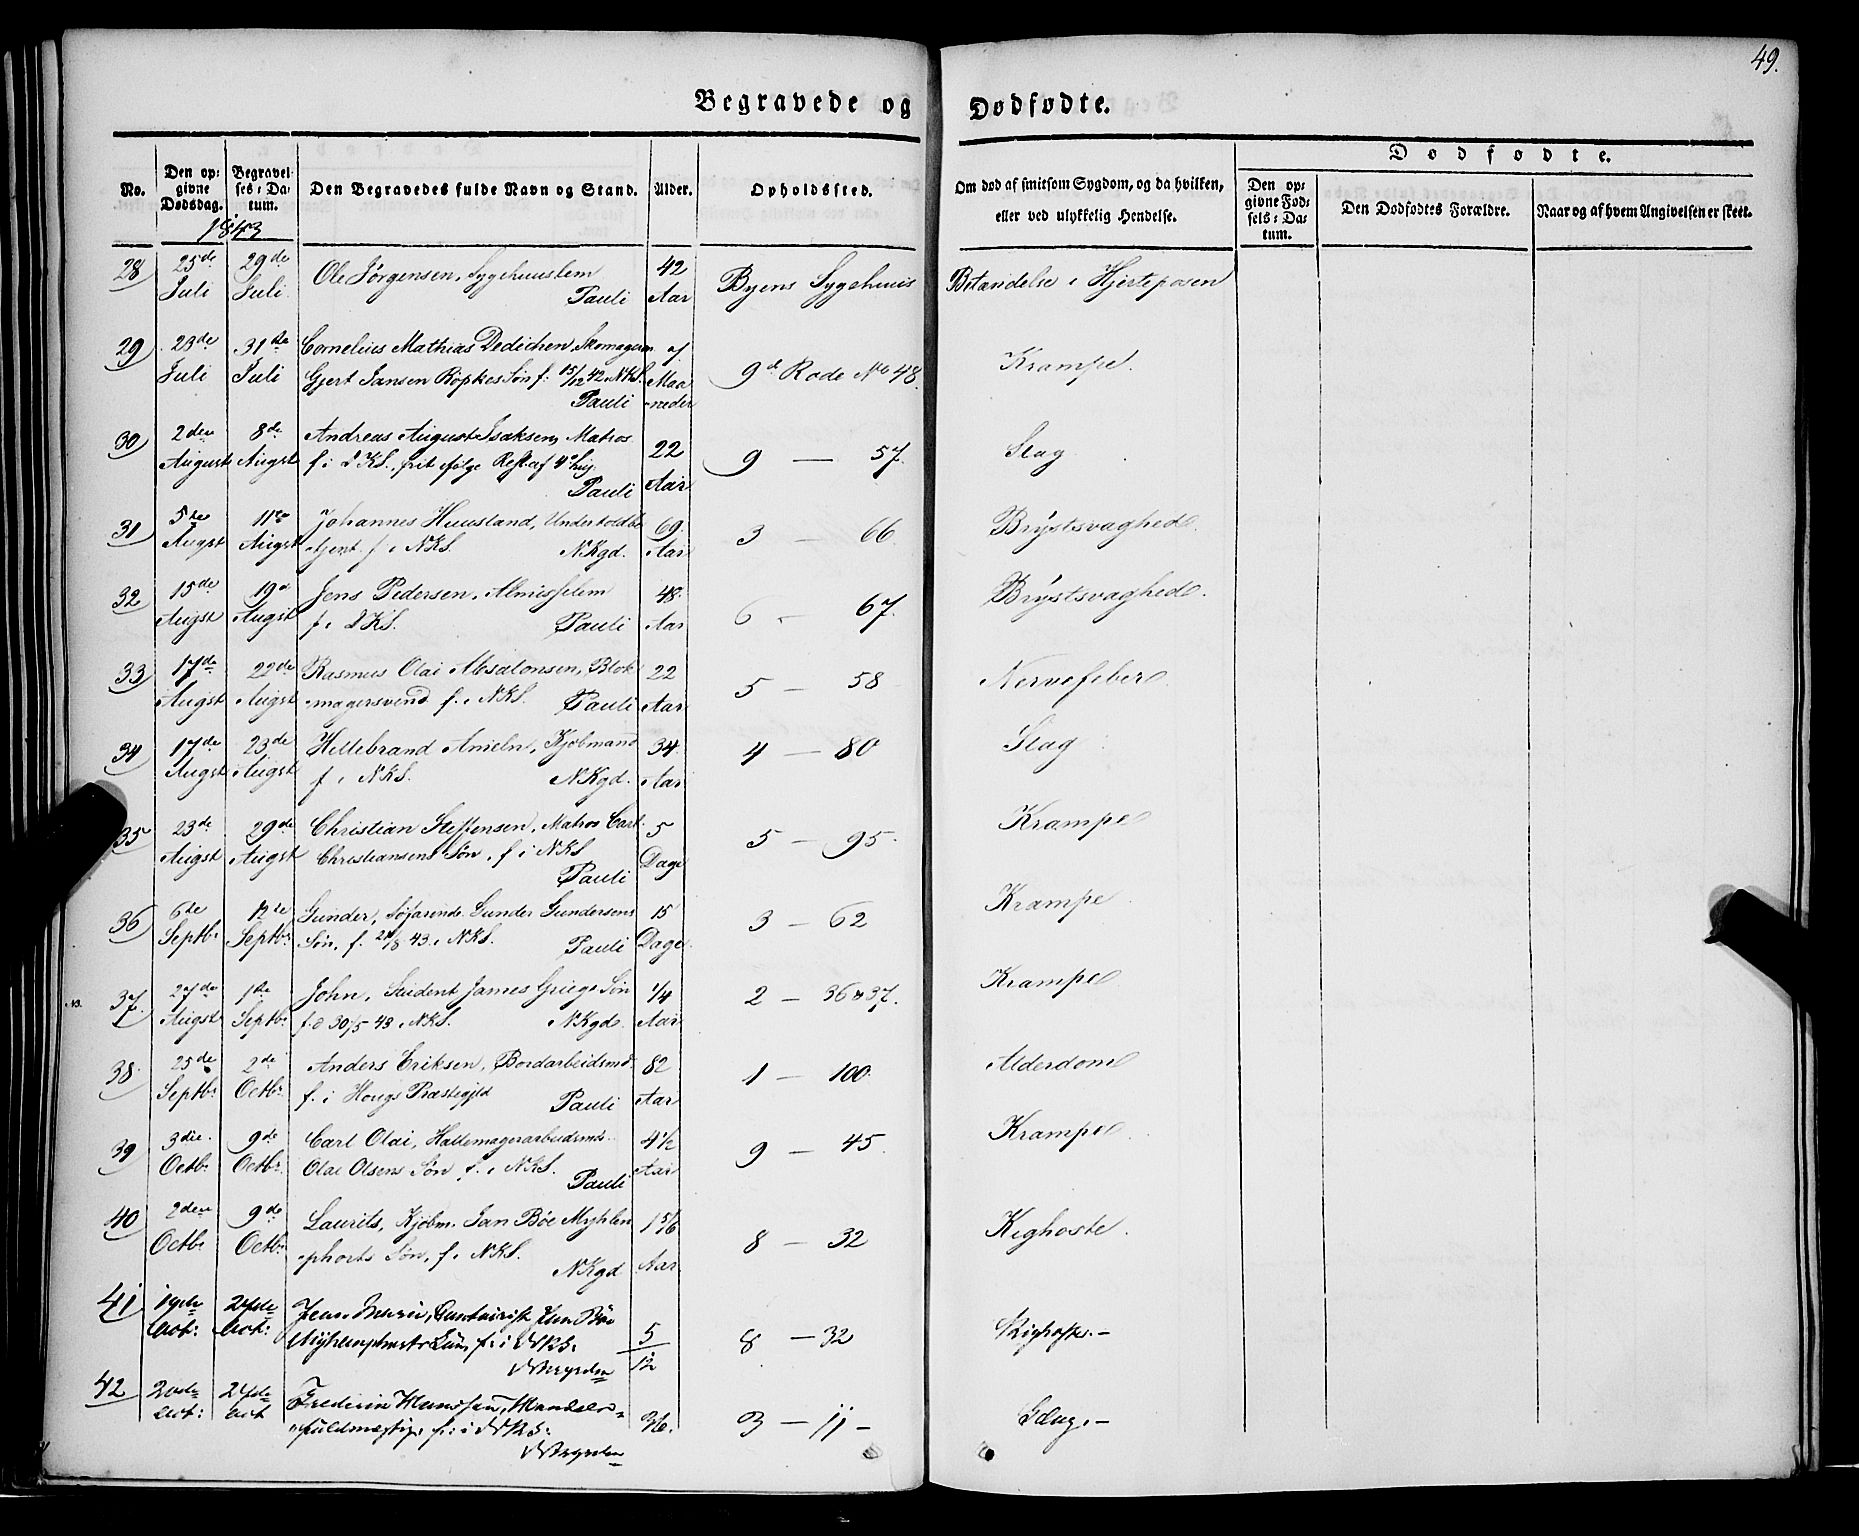 49.
Begravede og Dødfødte.
Dødfødte.
No.
Den op-
givne
Dødsdag.
Begravel-
ses-Da-
tum.
Den Begravedes fulde Navn og Stand.
Alder.
Opholdssted.
Om død af smitsom Sygdom, og da hvilken,
eller ved ulykkelig Hendelse.
Den op-
givne Fød-
sels-Da-
tum.
Den Dødfødtes Forældre.
Naar og af hvem Angivelsen er skeet.
1843
28 25de 29de Ole Jørgensen, Sygehuuslem 42 Byens Sygehuus Betændelse i Hjerteposen
Juli Juli Pauli Aar
29 23de 31te Cornelius Mathias Dedichen, Skomagersv. 7 9d Rode No 48. Krampe.
Juli Juli Gjert Jansen Röpkes Søn f: 15/12 42 i NKS. Maa
Pauli neder
30 2den 8de Andreas August Isaksen, Matros 22 9 — 57. Slag
August Augst f i DKS., frit følge Rest af Pauli Aar
31 5te 11te Johannes Huusland, Underholdt 69. 3 — 66 Brÿstsvaghed.
Augst Augst f i NKS. NKgd. Aar
32 15de 19d Jens Pedersen, Almisselem 48. 6 - 67. Brÿstsvaghed.
Augst Augst f i DKS. Pauli Aar
33 17de 22de Rasmus Olai Absalonsen, Blok 22 5 — 58 Nervefeber
Augst Augst magersvend f. i NKS. Pauli Aar
34 17de 23de Hillebrand Ameln, Kjøbmand 34. 4 — 80 Slag
Augst Augst f i NKS. NKgd. Aar
35 23de 29de Christian Steffensen, Matros Carl 5 5 — 95. Krampe
Augst Augst Christiansens Søn, f i NKS Pauli Dage
36 6te 12te Gunder, Søfarende Gunder Gundersens 15 3 — 62 Krampe
Septbr Septbr Søn, f. 21/8 43. i NKS. Pauli Dage
NB. 37. 27de 1ste John, Student James Griegs Søn 1/4 2 — 36 & 37. Krampe
Augst Septbr f. d 30/5 43 i NKS. NKgd. Aar
38 25de 2de Anders Eriksen, Bordarbeidsmd 82 1 — 100. Alderdom
Septbr Octbr f. i Hougs Præstegjld Pauli Aar
39 3die 9de Carl Olai, Hattemagerarbeidsmds 4 1/2 9 — 45 Krampe
Octbr Octbr. Olai Olsens Søn f. i NKS. Pauli Aar
40 2den 9de Laurits, Kjøbm. Jan Bøe Myhlen 1 5/6 8 — 32 Kighoste.
Octbr Octbr phorts Søn, f. i NKS. NKgd Aar
41 19de 24de Contoirist Jan Böe 5/12 8 — 32 Kighoste. —
Oct: Oct: Myhlenphorts Søn, f: i NKS.
42 20de 24de Frederik Handels= 36. 3 — 11 — Slag. —
Oct: Oct fuldmægtig, f: i NKS: